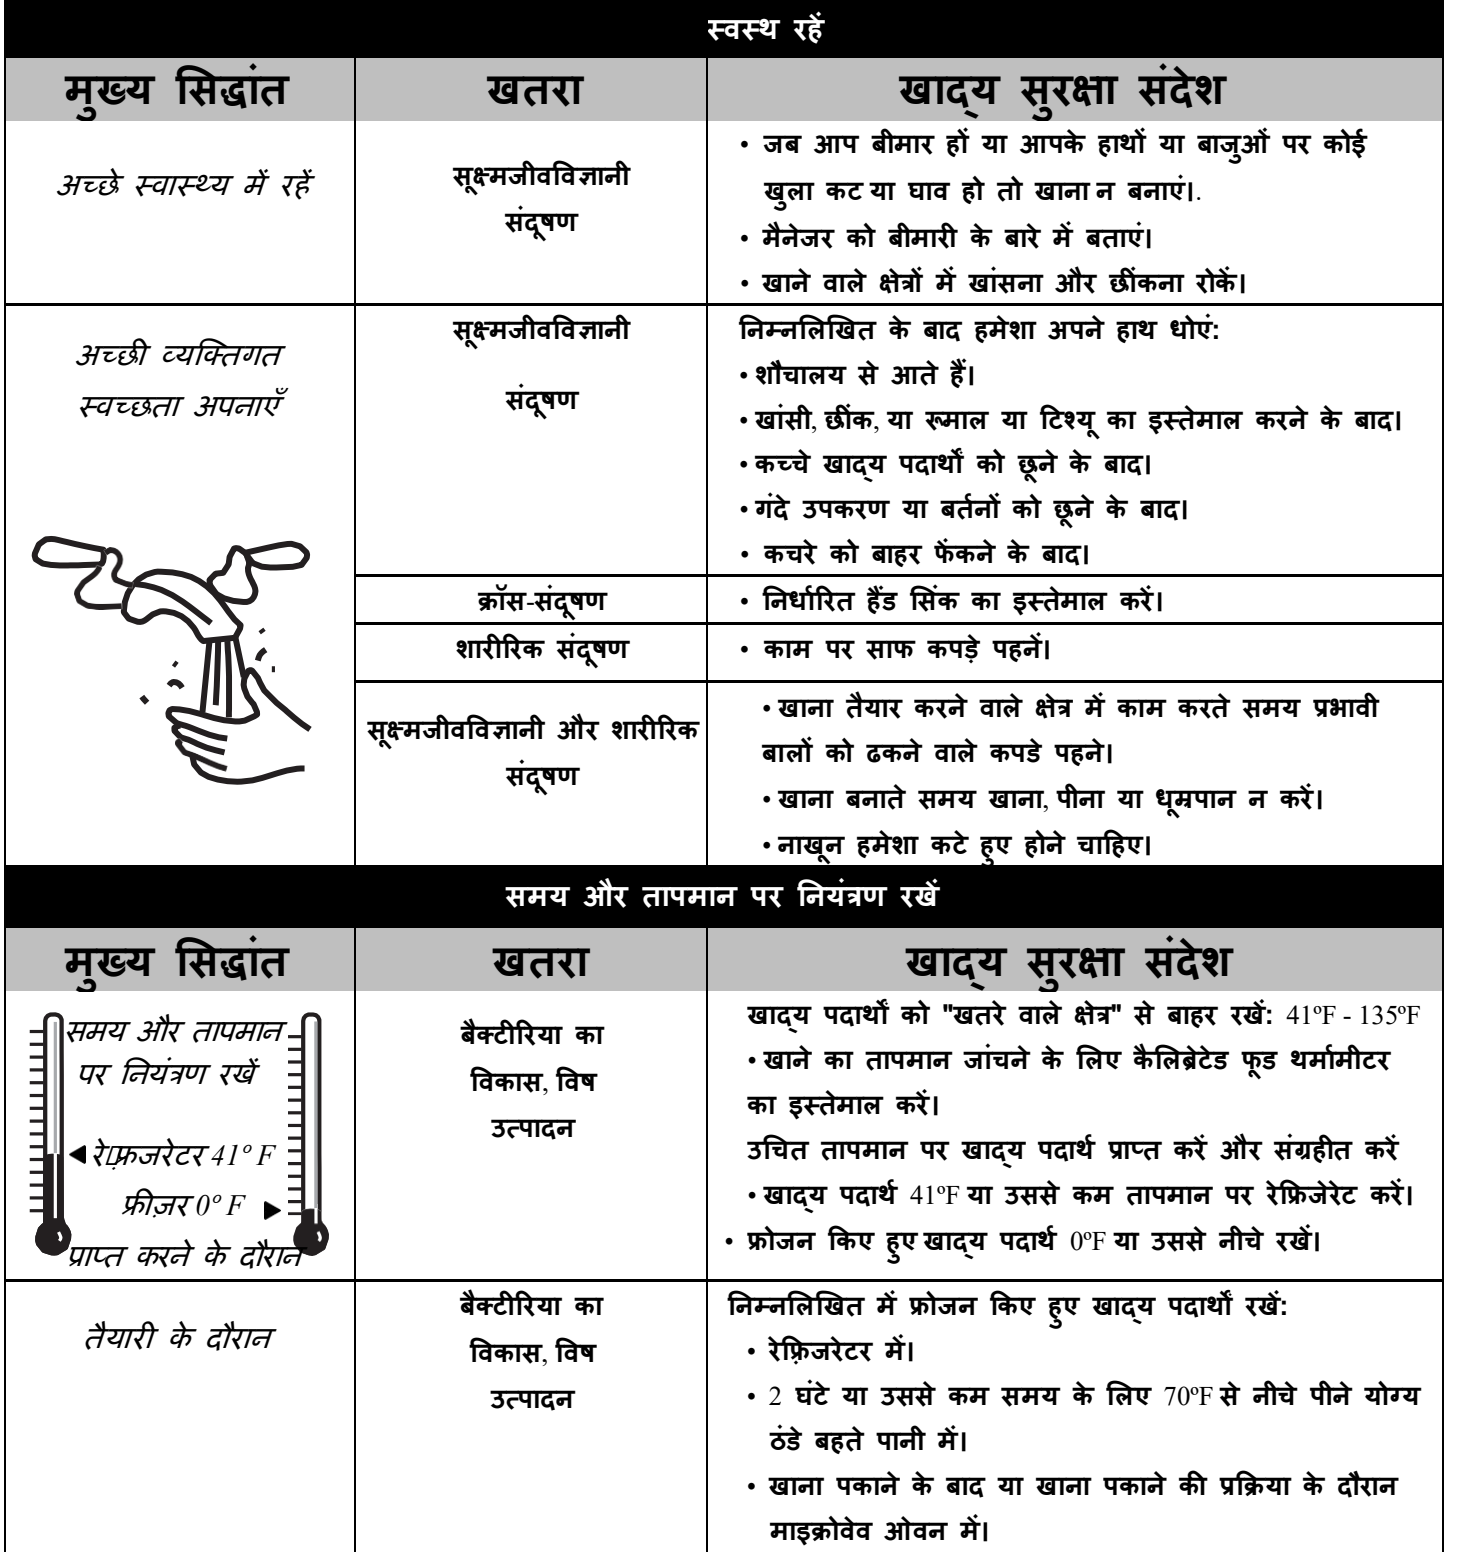 स्वस्थ रहें
मुख्य सिद्धांत खतरा खाद्य सुरक्षा संदेश
अच्छे स्वास्थ्य में रहें
सूक्ष्मजीवविज्ञानी
संदूषण
• जब आप बीमार हों या आपके हाथों या बाजुओं पर कोई
खुला कट या घाव हो तो खाना न बनाएं।.
• मैनेजर को बीमारी के बारे में बताएं।
• खाने वाले क्षेत्रों में खांसना और छींकना रोकें।
अच्छी व्यक्तिगत
स्वच्छता अपनाएँ
सूक्ष्मजीवविज्ञानी
संदूषण
निम्नलिखित के बाद हमेशा अपने हाथ धोएं:
• शौचालय से आते हैं।
• खांसी, छींक, या रूमाल या टिश्यू का इस्तेमाल करने के बाद।
• कच्चे खाद्य पदार्थों को छूने के बाद।
• गंदे उपकरण या बर्तनों को छूने के बाद।
• कचरे को बाहर फेंकने के बाद।
क्रॉस-संदूषण
• निर्धारित हैंड सिंक का इस्तेमाल करें।
शारीरिक संदूषण
• काम पर साफ कपड़े पहनें।
सूक्ष्मजीवविज्ञानी और शारीरिक
संदूषण
• खाना तैयार करने वाले क्षेत्र में काम करते समय प्रभावी
बालों को ढकने वाले कपडे पहने।
• खाना बनाते समय खाना, पीना या धूम्रपान न करें।
• नाखून हमेशा कटे हुए होने चाहिए।
समय और तापमान पर नियंत्रण रखें
मुख्य सिद्धांत खतरा खाद्य सुरक्षा संदेश
समय और तापमान
पर नियंत्रण रखें
रेफ्रिजरेटर 41º F
फ्रीज़र 0º F
प्राप्त करने के दौरान
बैक्टीरिया का
विकास, विष
उत्पादन
खाद्य पदार्थों को "खतरे वाले क्षेत्र" से बाहर रखें: 41ºF - 135ºF
• खाने का तापमान जांचने के लिए कैलिब्रेटेड फूड थर्मामीटर
का इस्तेमाल करें।
उचित तापमान पर खाद्य पदार्थ प्राप्त करें और संग्रहीत करें
• खाद्य पदार्थ 41ºF या उससे कम तापमान पर रेफ्रिजेरेट करें।
• फ्रोजन किए हुए खाद्य पदार्थ 0ºF या उससे नीचे रखें।
तैयारी के दौरान
बैक्टीरिया का
विकास, विष
उत्पादन
निम्नलिखित में फ्रोजन किए हुए खाद्य पदार्थों रखें:
• रेफ़्रिजरेटर में।
• 2 घंटे या उससे कम समय के लिए 70ºF से नीचे पीने योग्य
ठंडे बहते पानी में।
• खाना पकाने के बाद या खाना पकाने की प्रक्रिया के दौरान
माइक्रोवेव ओवन में।